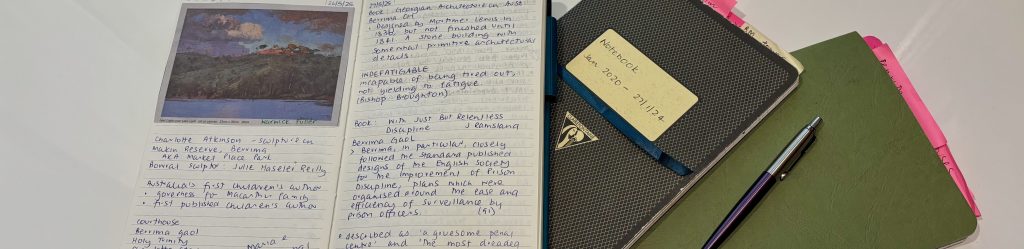 26/5/25
Warwick Fuller
Charlotte Atkinson - sculpture in
Makin Reserve, Berrima
AKA Market Place Park
Bowral sculptor: Julie Haseler Reilly
Australia's first children's author
• governess for Macarthur family
• first published children's author
Courthouse
Berrima gaol
Holy Trinity
Book: Georgian Architecture in Aust
Berrima CH
• Designed by Mortimer Lewis in
1836 but not finished until
1841. A stone building with
somewhat primitive architectural
details.
INDEFATIGABLE
incapable of being tired out,
not yielding to fatigue.
(Bishop Broughton)
Book: With Just But Relentless
Discipline J Ramsland
Berrima Gaol
> Berrima, in particular, closely
followed the standard published
designs of the English Society
for the Improvement of Prison
Discipline, plans which were
organised around the ease and
efficiency of surveillance by
prison officers. (91)
• described as 'a gruesome penal
centre' and 'the most dreaded
NOTEBOOK
Jan 2020 - 27/1/24